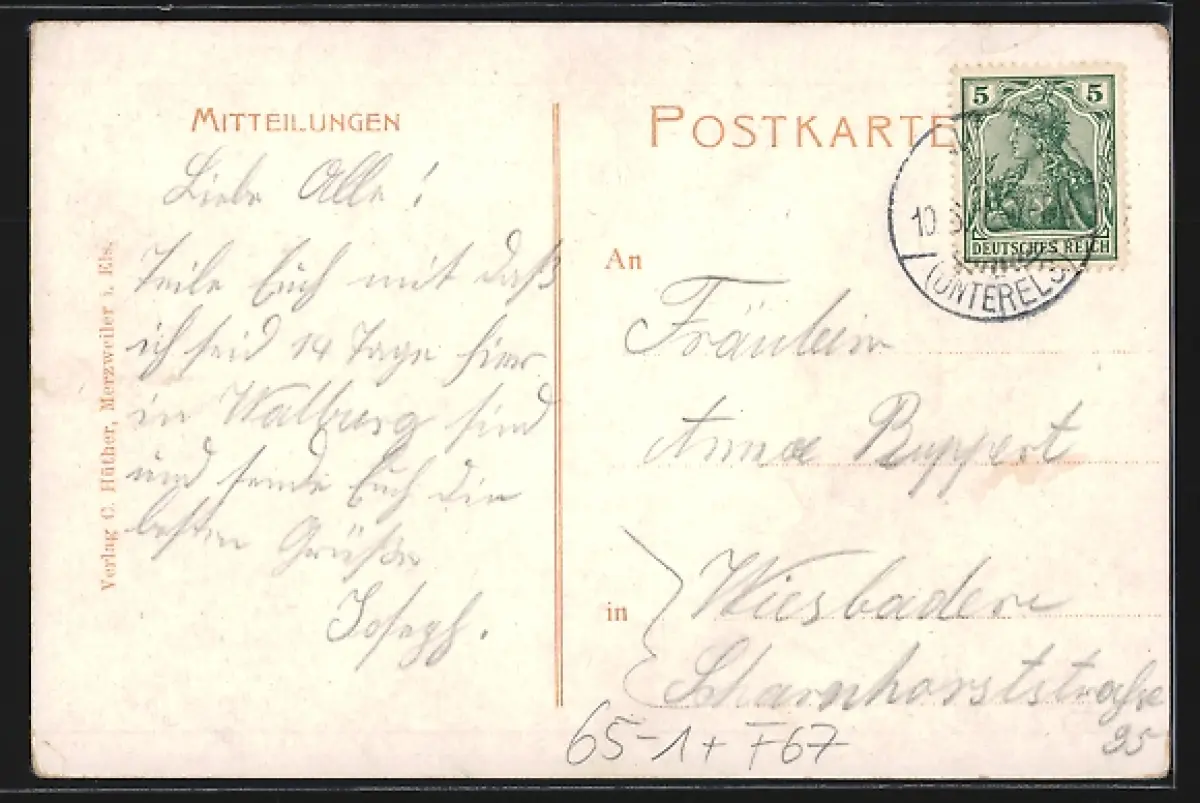 MITTEILUNGEN
Liebe Alle!
Teile Euch mit daß
ich seid 14 Tage hier
in Walburg sind
und sende Euch die
besten Grüße
Joseph.
Verlag C. Hüther, Merzweiler i. Els.
POSTKARTE
5 5
DEUTSCHES REICH
10
(UNTERELS
An
Fräulein
Anna Ruppert
in Wiesbaden
Scharnhorststraße
35
65-1+ T67